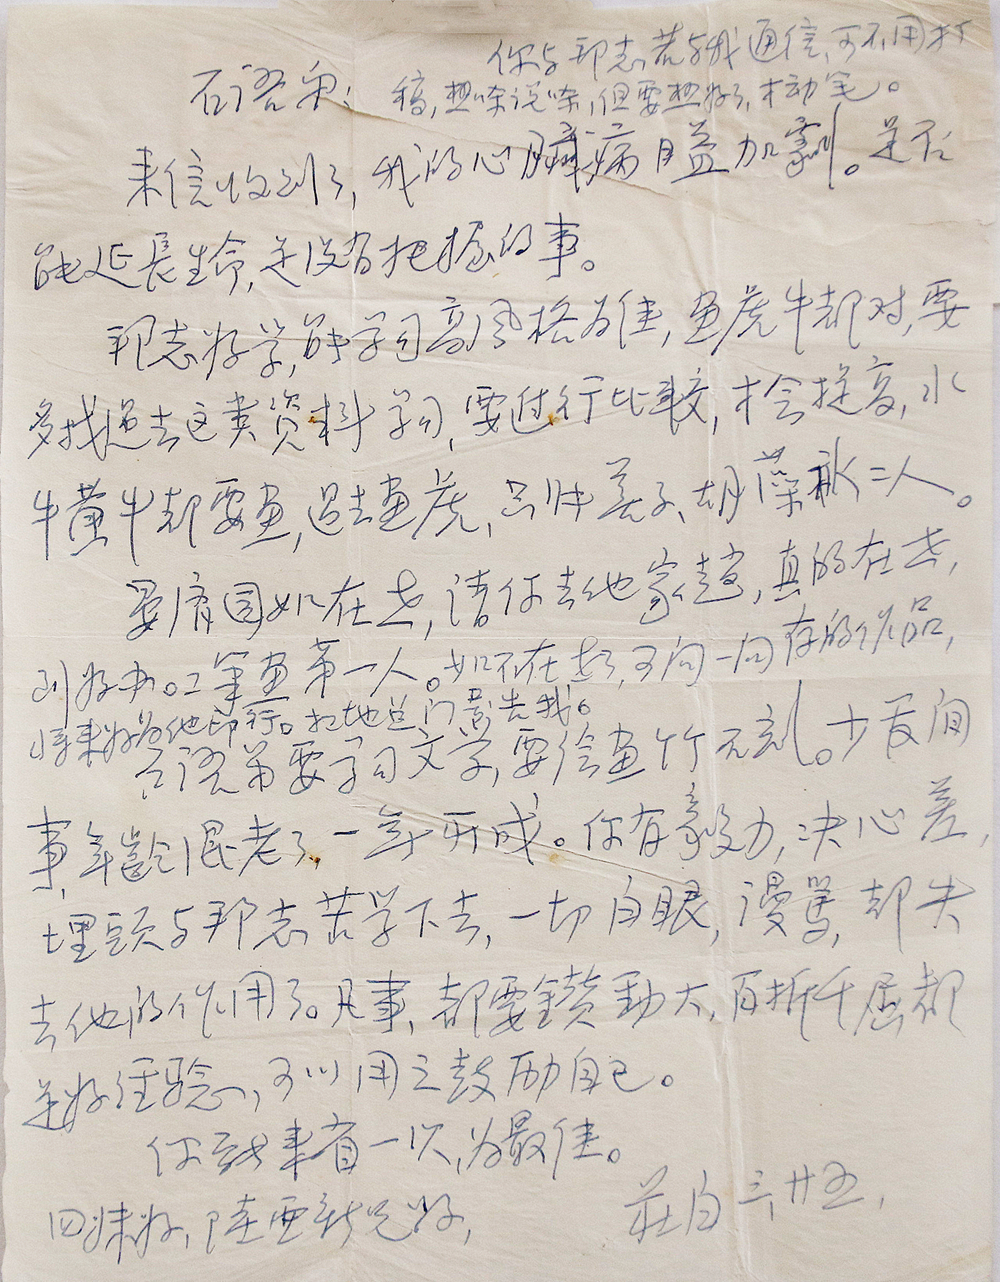 你与邦志若与我通信,可不用打
稿,想啥说啥,但要想好了,才动笔。
石语弟:
来信收到了,我的心臟病日益加劇。是否
能延長生命,是没有把握的事。
邦志好学,能学习高风格为佳,画虎牛都对,要
多找过去这类资料学习,要进行比較,才会提高,水
牛黄牛都要画,过去画虎,只 善子、胡藻斌二人。
晏 园如在世,请你去他家 ,真的在世,
则好办。工笔画第一人。如不在世了,可问一问存的作品,
将来好为他印行。把地点门 告我。
石语弟要学习文学,要绘画竹 刻。少管闲
事,年齡混老了一事无成。你有毅力,决心差,
埋頭与邦志苦学下去,一切白眼,漫罵,都失
去他的作用了。凡事,都要鑽勁大,百折千屈都
是好经验,可以用之鼓励自己。
你能来看一次,为最佳。
四妹好,陸 新兄好,
莊白 三,廿五,